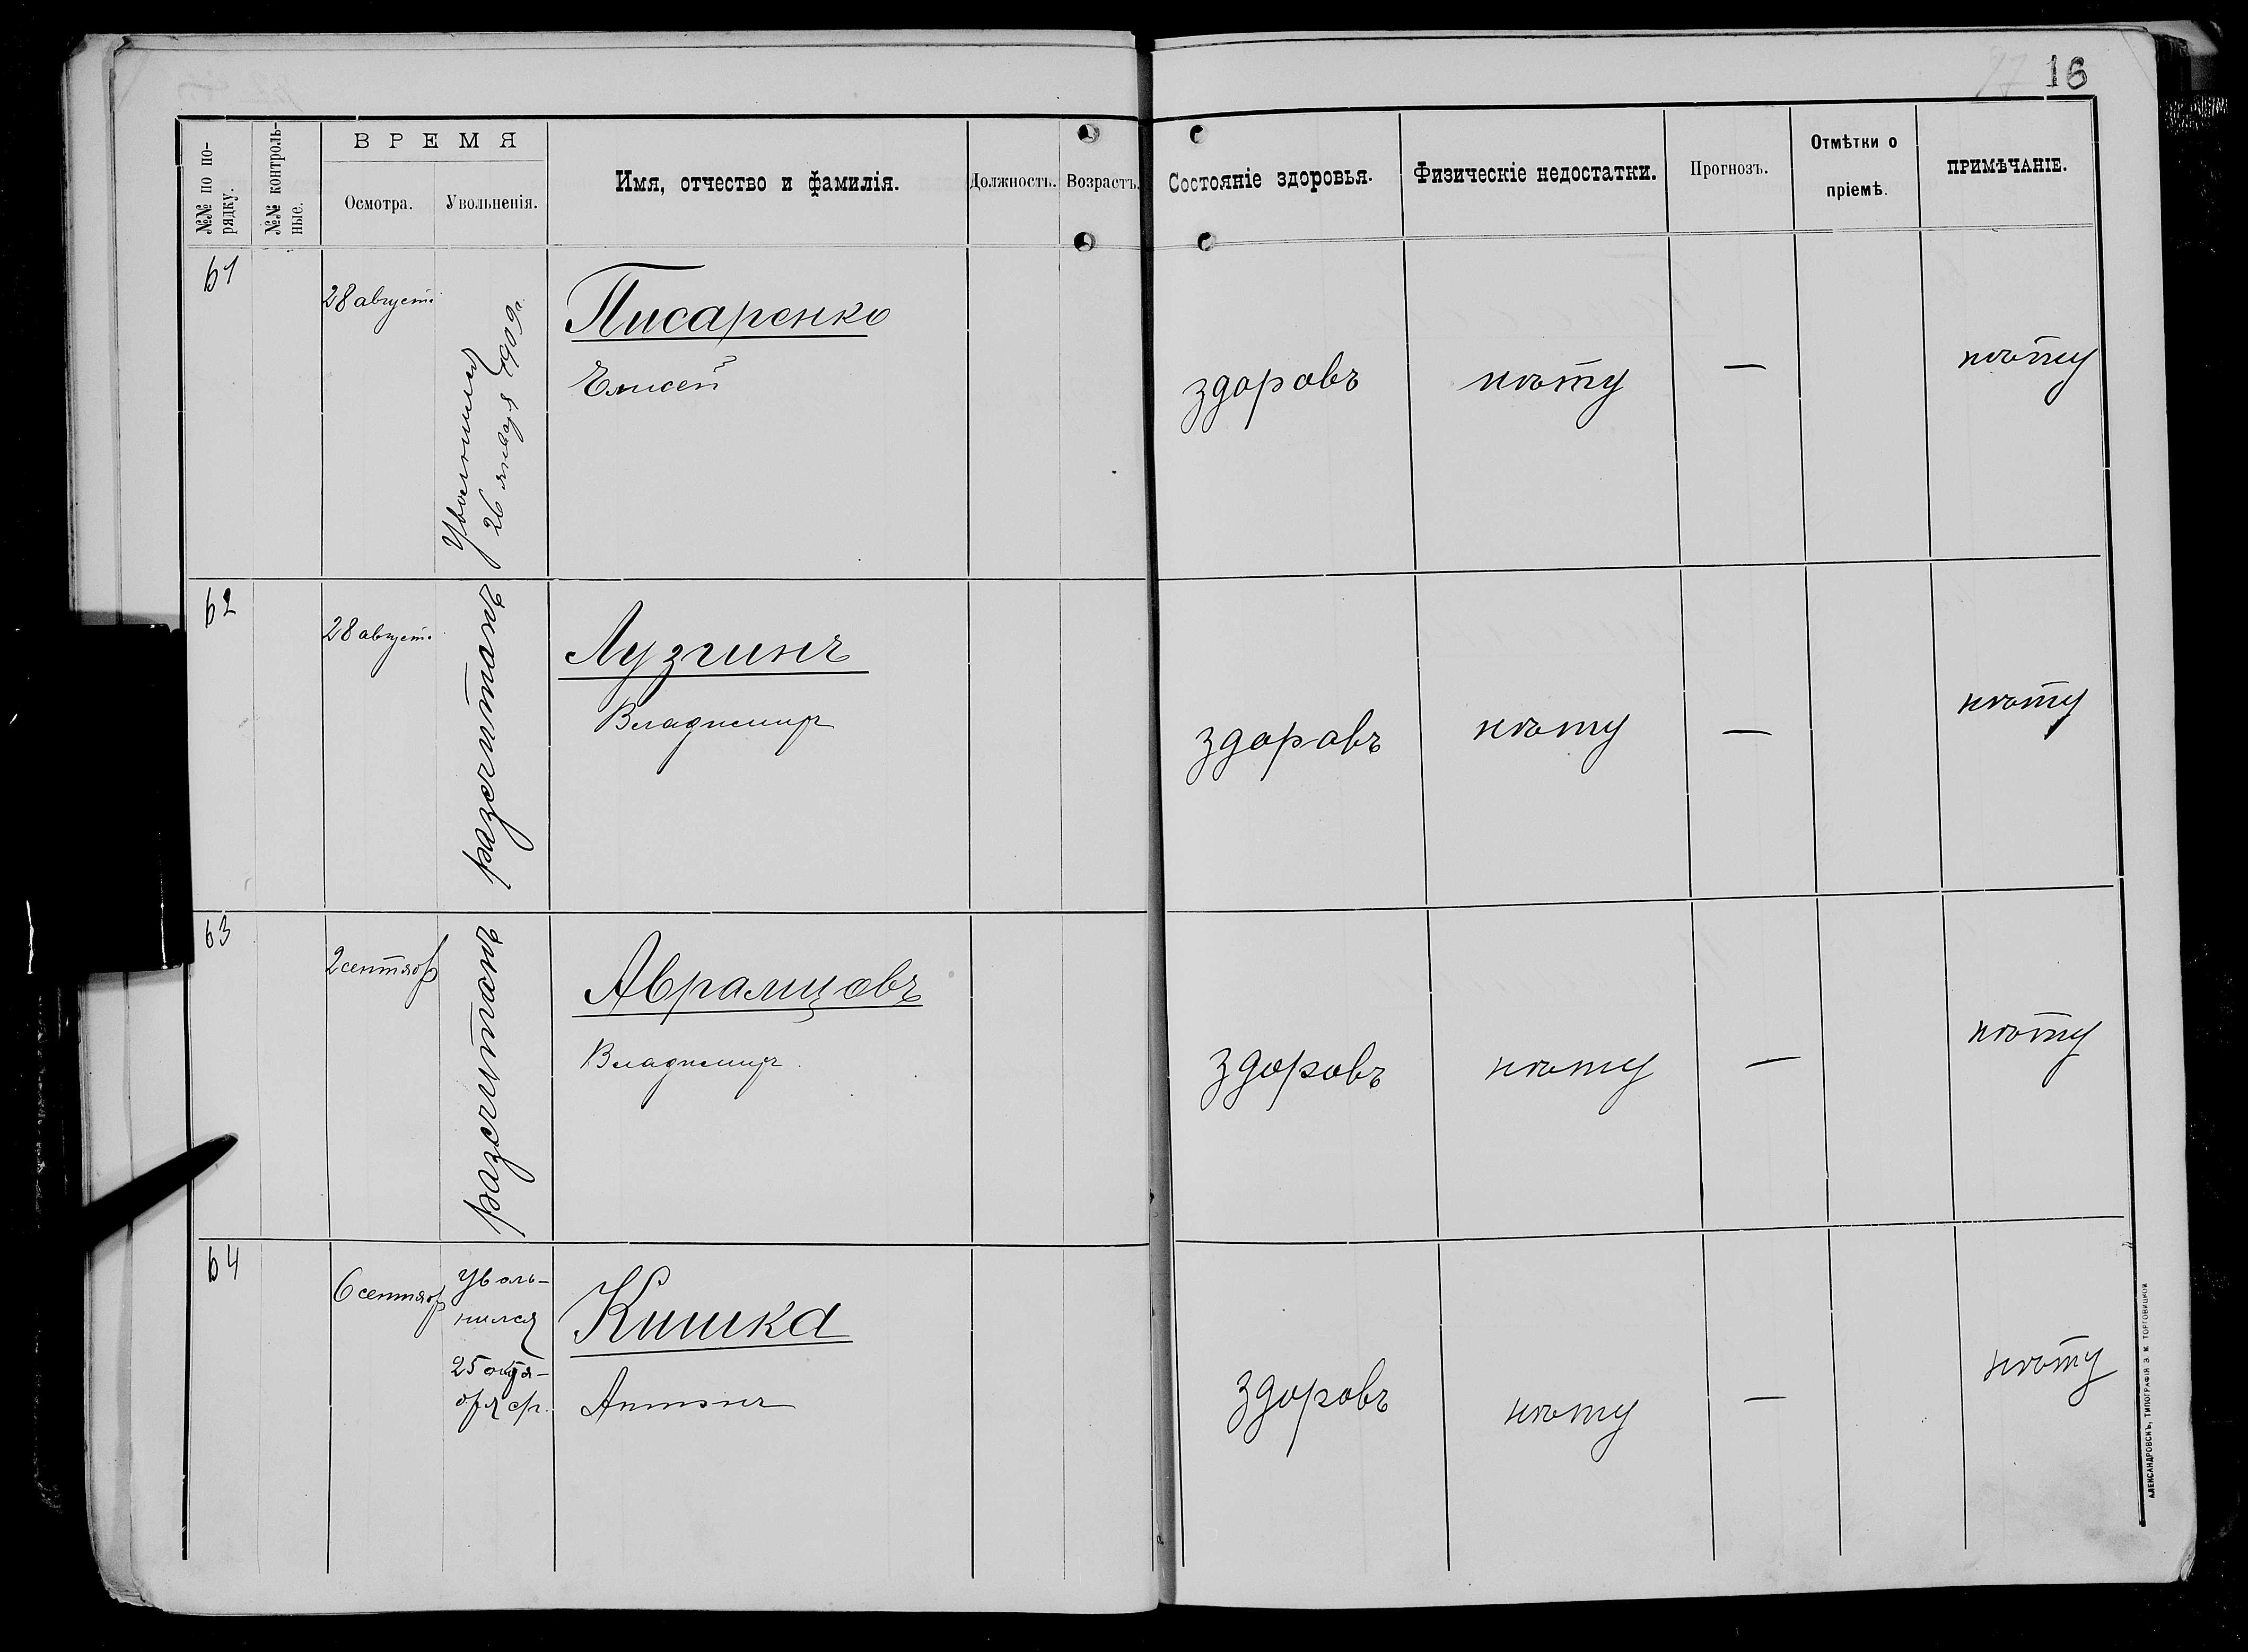 16
№№ по по-
рядку.
№№ контроль-
ные.
ВРЕМЯ
Осмотра.
Увольненія.
Имя, отчество и фамилія.
Должность.
Возрастъ.
Состояніе здоровья.
Физическіе недостатки.
Прогнозъ.
Отмѣтки о
пріемѣ.
ПРИМѢЧАНІЕ.
61
28 август.
Уволился
26 января 1909 г.
Писаренко
Елисей
здоровъ
нѣту
—
нѣту
62
28 август.
разсчитанъ
Лузгинъ
Владимиръ
здоровъ
нѣту
—
нѣту
63
2 сентяб
разсчитанъ
Аврамцовъ
Владимиръ
здоровъ
нѣту
—
нѣту
64
6 сентяб
Уволь-
нился
25 октя-
бря
Кишка
Антонъ
здоровъ
нѣту
—
нѣту
АЛЕКСАНДРОВСКЪ, ТИПОГРАФІЯ Э. М. ТОРГОВИЦКОЙ